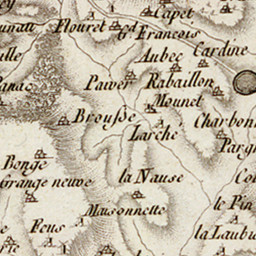 Capet
Flouret
Gd Francois
Aubec
Cardine
Pauver
Rabaillon
Mounet
Brousse
Larche
Charbon
Parg
Bonge
Grange neuve
la Nause
Maisonnette
le Pin
Feus
la Laubu